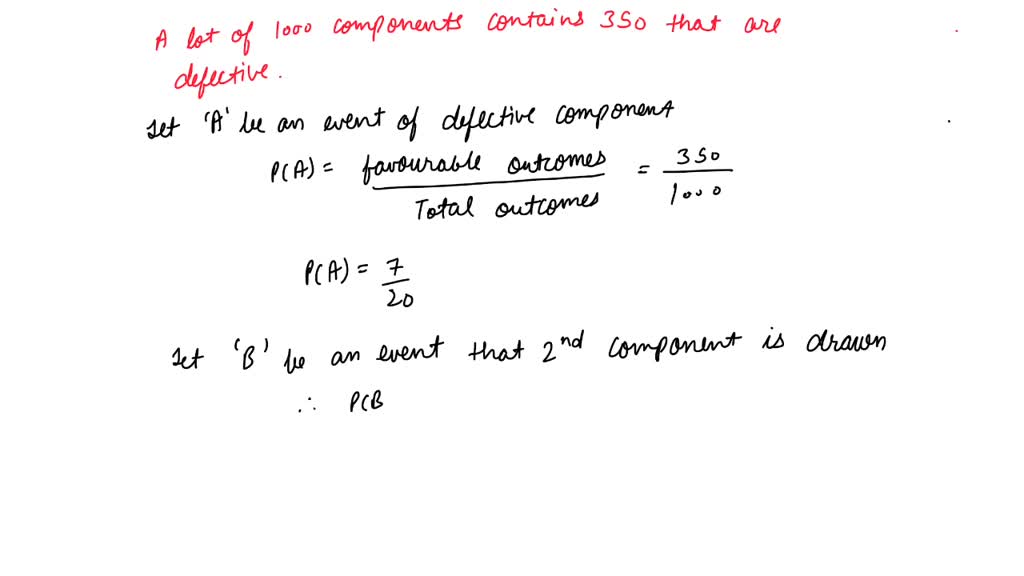 A lot of 1000 components contains 350 that are
defective.
Let 'A' be an event of defective component
P(A) = favourable outcomes / Total outcomes = 350 / 1000
P(A) = 7 / 20
Let 'B' be an event that 2nd component is drawn
∴ P(B